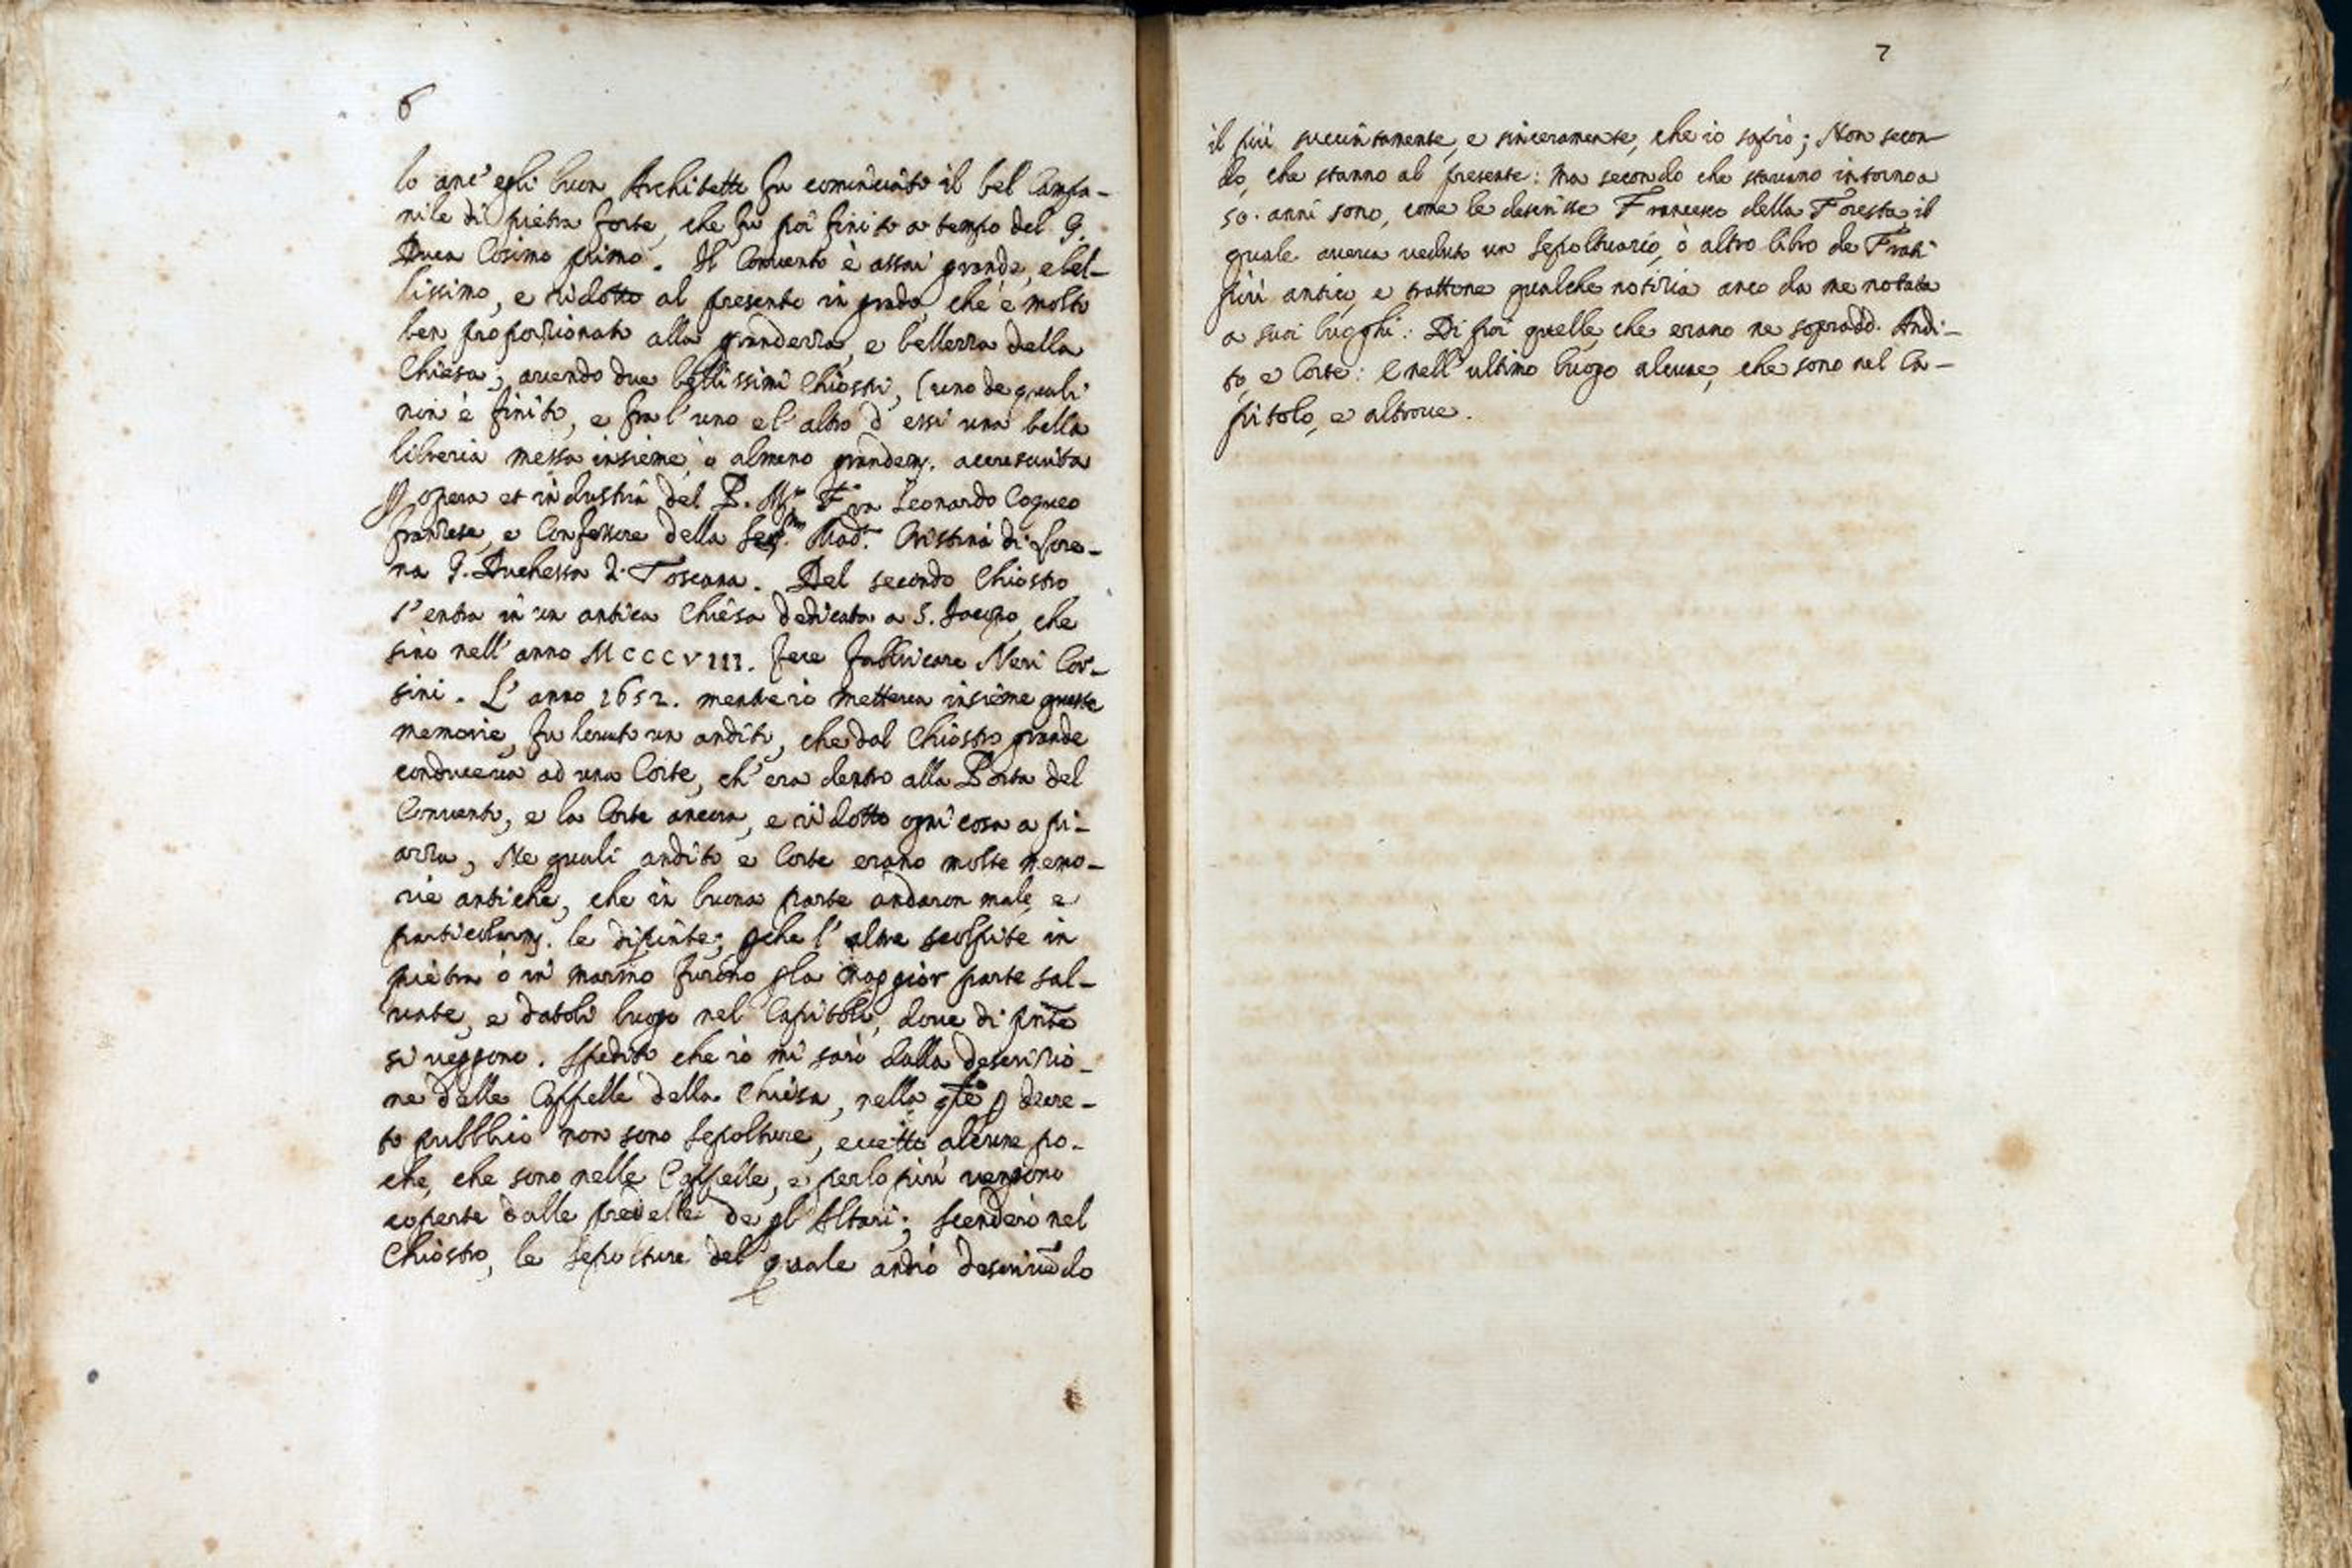 6
lo anc' egli buon Architetto fu cominciato il bel Campa-
nile di pietra forte, che fu poi finito a tempo del G.
Duca Cosimo primo. Il Convento è assai grande, e bel-
lissimo, e ridotto al presente in grado, che è molto
ben proporzionato alla grandezza, e bellezza della
Chiesa; avendo due bellissimi Chiostri, (uno de quali
non è finito, e fra l'uno e l'altro d'essi una bella
libreria messa insieme, o almeno grandem. accresciuta
p opera et industria del P. M.ro Fra Leonardo Coqueo
franzese, e Confessore della Ser.ma Mad.a Cristina di Lore-
na G. Duchessa di Toscana. Del secondo Chiostro
s'entra in un antica Chiesa dedicata a S. Jacopo, che
sino nell'anno MCCCVIII. fece fabbricare Neri Cor-
sini. L'anno 1652. mentre io metteva insieme queste
memorie, fu levato un andito, che dal Chiostro grande
conduceva ad una Corte, ch'era dentro alla Porta del
Convento, e la Corte ancora, e ridotto ogni cosa a pi-
azza, Ne quali andito e Corte erano molte memo-
rie antiche, che in buona parte andaron male, e
particolarm. le dipinte; pche l'altre scolpite in
pietra ò in marmo furono p la maggior parte sal-
vate, e datoli luogo nel Capitolo, dove di pnte
si veggono. Spedito che io mi sarò dalla descrizio-
ne delle Cappelle della Chiesa, nella qle p decre-
to pubblico non sono sepolture, eccetto alcune po-
che, che sono nelle Cappelle, e perlo più vengono
coperte dalle predelle de gl'Altari; scenderò nel
Chiostro, le sepolture del quale andrò descrivẽdo
7
il più succintamente, e sinceramente, che io saprò; Non secon-
do, che stanno al presente: ma secondo che stavano intorno a
50. anni sono, come le descrisse Francesco della Foresta il
quale aveva veduto un sepoltuario, ò altro libro de Frati
più antico, e trattone qualche notizia anco da me notata
a suoi luoghi: Di poi quelle, che erano ne sopradd. Andi-
to, e Corte: E nell'ultimo luogo alcune, che sono nel Ca-
pitolo, e altrove.